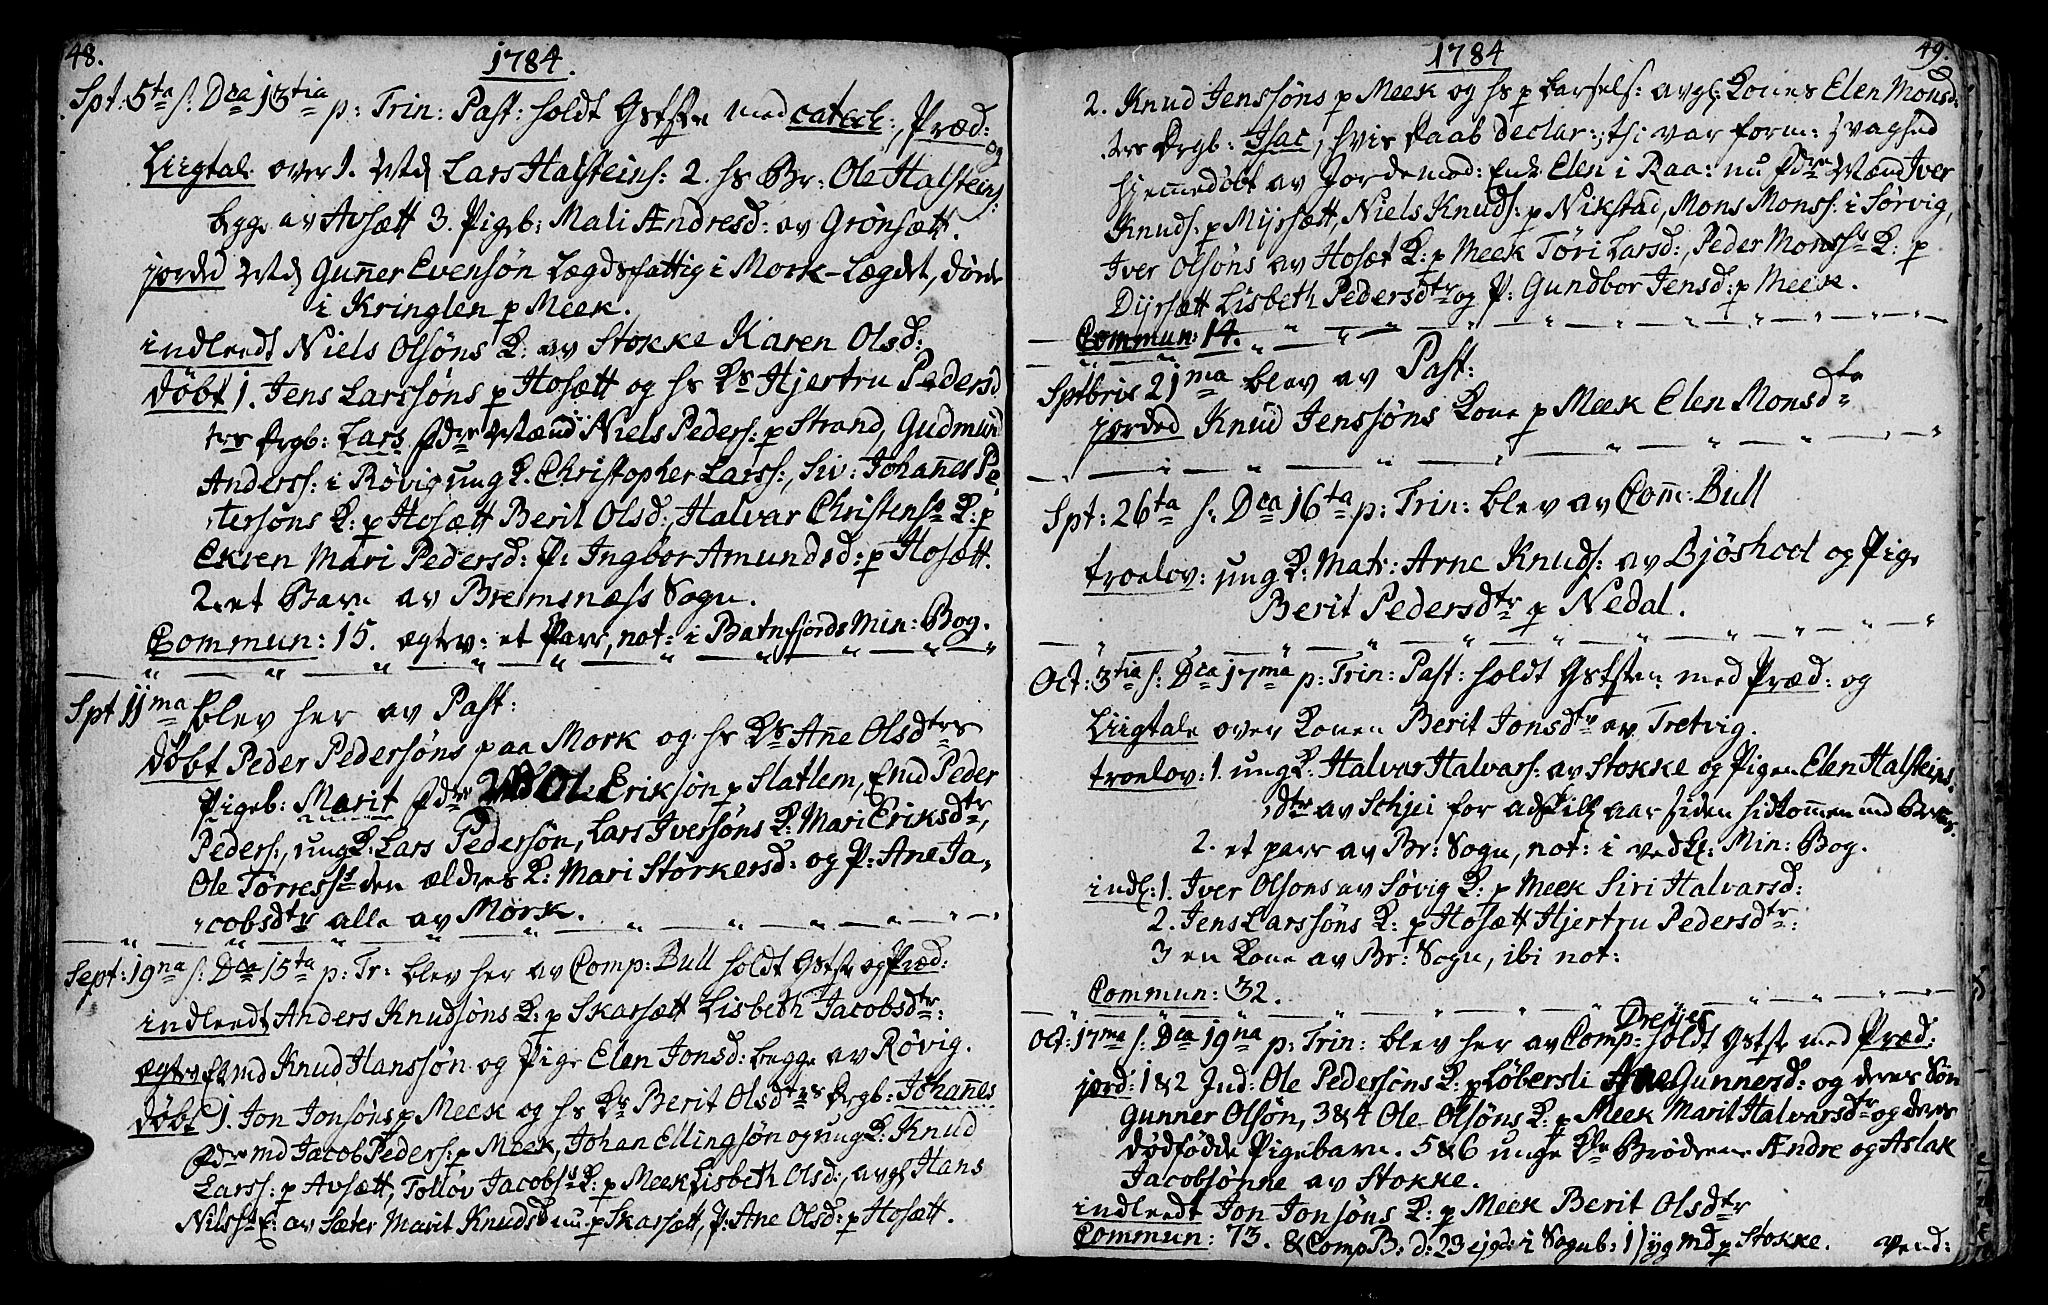 48.
1784.
Spt: 5ta s: Dca 13tia p: Trin: Past: holdt Gstste med catech:, Præd: og
Liigtale over 1. Md Lars Halsteins: 2. hs Br: Ole Halsteins:
begge av Avsætt 3. Pigeb: Mali Ændresd: av Grönsætt.
jorded Md Gunner Evensön Lægdsfattig i Mork-Lægdet, döde
i Kringlen p Meek.
indleedt Niels Olsöns K: av Stokke Karen Olsd:
döbt 1. Jens Larssöns p Hosætt og hs Ks Hjertru Pedersd
trs drgb: Lars fdre Mænd Niels Peders: p Strand, Gudmund
Anderss: i Rövig ung K. Christopher Larss:, Siv: Johannes Pe-
tersöns K: p Hosætt Beril Olsd:, Halvar Christenss K: p
Ekren Mari Pedersd: P: Ingbor Amundsd: p Hosætt.
2. et Barn av Bremsnæss Sogn.
Commun: 15. egtev: et Parr, not: i Batnfjords Min: Bog.
Spt 11ma blev her av Past:
döbt Peder Pedersöns paa Mork og hs Ks Anne Olsdtrs
Pigeb: Marit fdre Ole Eriksön p Slatlem, Enud Peder
Peders:, ung K: Lars Pedersön, Lars Iversöns K: Mari Eriksdtr,
Ole Törress: den ældres K: Mari Storkersd: og P: Ane Ja-
cobsdtr alle av Mork.
Sept: 19na s: Dca 15ta p: Tr: blev her av Comp: Bull holdt Gstste og Præd:
indleedt Anders Knudsöns K: p Skarsætt Lisbeth Jacobsdtr:
egtev Ekmd Knud Hanssön og Pige Elen Jonsd: begge av Rövig.
döbt 1. Jon Jonsöns p Meek og hs Ks Berit Olsdtrs drgb: Johannes
fdre md Jacob Peders: p Meek, Johan Ellingsön og ung K: Knud
Larss: p Avsætt, Tollov Jacobs: K: p Meek Lisbeth Olsd:, avgl Hans
Nilss: E: av Sæter Marit Knudsd nu p Skarsætt, P: Ane Olsd: p Hosætt.
1784
49.
2. Knud Jenssöns p Meek og hs p barsels: avgl: Kones Elen Monsd:
trs Drgb: Isac, hvis daab declar:; th: var form: svaghed
hjemmedöbt av Jordemod: Enk Elen i Raa: nu fdre Mænd Iver
Knuds: p Myrsætt, Niels Knuds: p Nikstad, Mons Monss: i Sörvig,
Iver Olsöns av Hosæt K: p Meek Töri Larsd:, Peder Monss: K: p
Dyrsætt Lisbeth Pedersdtr og P: Gundbor Jensd: p Meek.
Commun: 14.
Sptbris 21ma blev av Past:
jorded Knud Jenssöns Kone p Meek Elen Monsdtr
Spt: 26ta s: Dca 16ta p: Trin: blev av Com: Bull
troelov: ung K: Matr: Arne Knuds: av Bjöshool og Pige
Berit Pedersdtr p Nedal.
Oct: 3tia s: Dca 17ma p: Trin: Past: holdt Gststen med Præd: og
Liigtale over Konen Berit Jonsdtr av Tretvig.
troelov: 1. ung K: Halvar Halvars: av Stokke og Pigen Elen Halsteins
dtr av Schjei for adskill aar siden hidkommen md
2. et parr av Br: Sogn, not: i vedk: Min: Bog.
indl: 1. Iver Olsons av Sövig K: p Meek Siri Halvarsd:
2. Jens Larssöns K: p Hosætt Hjertru Pedersdtr:
3 en Kone av Br: Sogn, ibi not:
Commun: 32.
Oct: 17ma s: Dca 19na p: Trin: blev her av Comp: Dreyer holdt Gstste med Præd:
jord: 1 & 2 Ind: Ole Pedersöns K: p Löbersli Ane Gunnersd: og deres Sön
Gunner Olsön, 3 & 4 Ole Olsöns K: p Meek Marit Halvarsdtr og deres
dödfödde Pigebarn. 5 & 6 unge Ke Brödrene Ændre og Aslak
Jacobsönne av Stokke.
indleedt Jon Jonsöns K: p Meek Berit Olsdtr
Commun: 73. & Comp B: d: 23 ejsd: i Sognb: 1 syg md p Stokke. Vend: